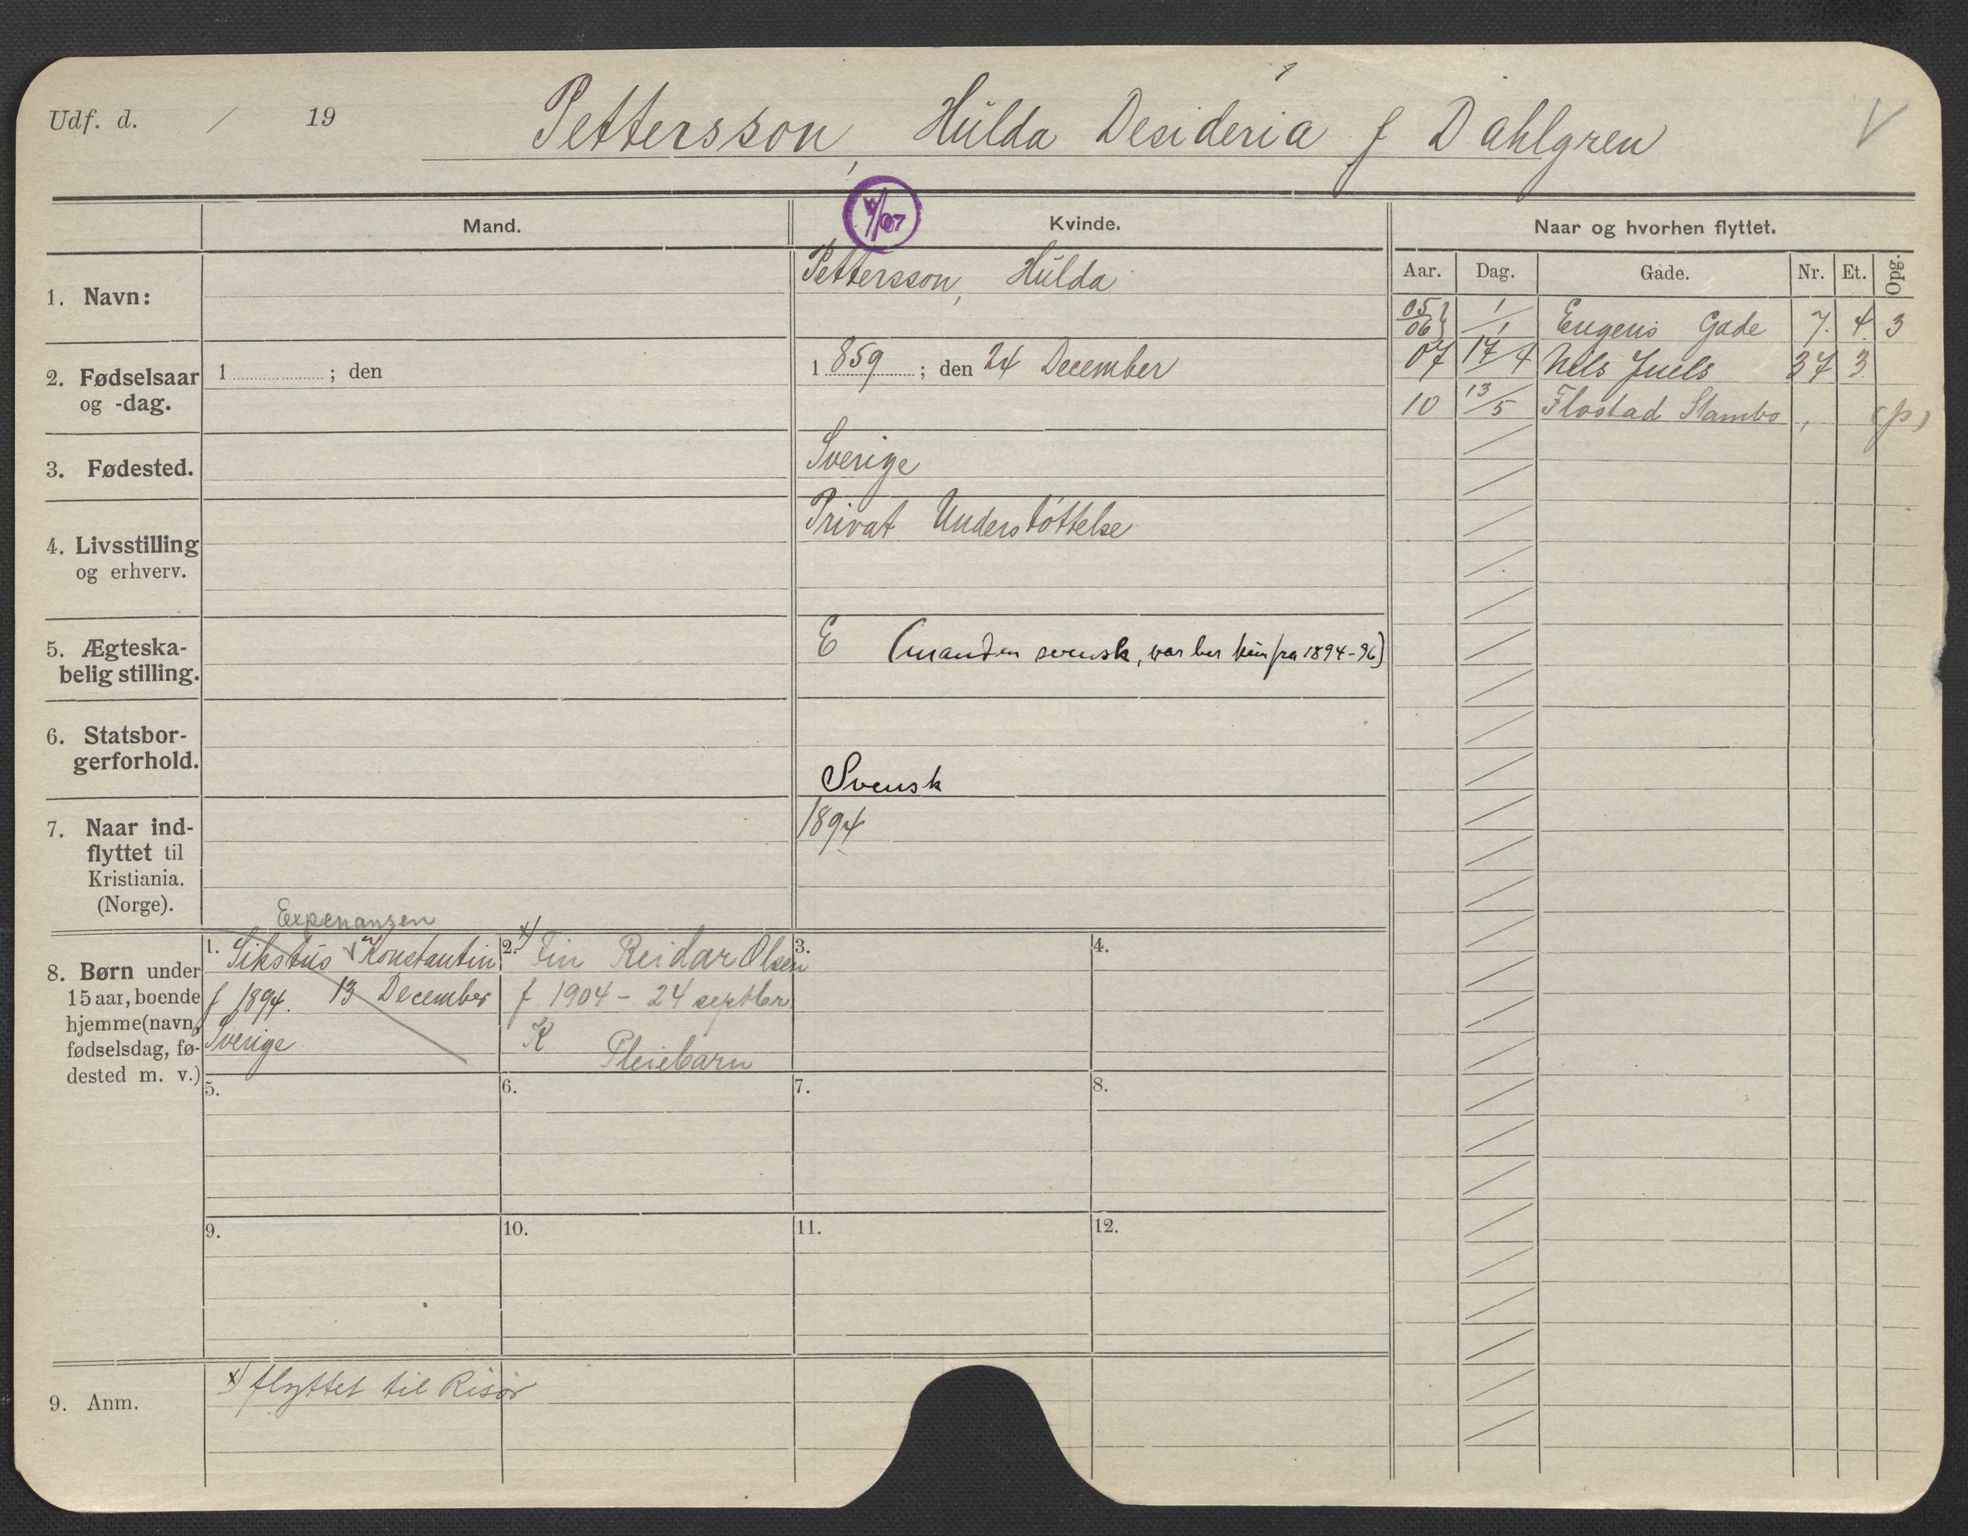 Udf. d. / 19 Pettersson, Hulda Desideria f Dahlgren
Mand.
4/07
Kvinde.
Naar og hvorhen flyttet.
Aar. Dag. Gade. Nr. Et. Opg.
1. Navn:
Pettersson, Hulda
2. Fødselsaar
og -dag.
1 ; den
1859 ; den 24 December
3. Fødested.
Sverige
4. Livsstilling
og erhverv.
Privat Understøttelse
5. Ægteska-
belig stilling.
E (manden svensk, var her kun fra 1894-96)
6. Statsbor-
gerforhold.
Svensk
7. Naar ind-
flyttet til
Kristiania.
(Norge).
1894
05/06 1/1 Eugenis Gade 7. 4. 3
07 17/4 Nils Juels 37 3.
10 13/5 Flostad Stambo, (p)
8. Børn under
15 aar, boende
hjemme (navn,
fødselsdag, fø-
dested m. v.)
1. Sikstus Konstantin
f 1894. 13 December
Sverige
2. x) Fin Reidar Olsen
f. 1904 - 24 septber
K
Pleiebarn
3.
4.
5.
6.
7.
8.
9.
10.
11.
12.
9. Anm.
x) flyttet til Risør